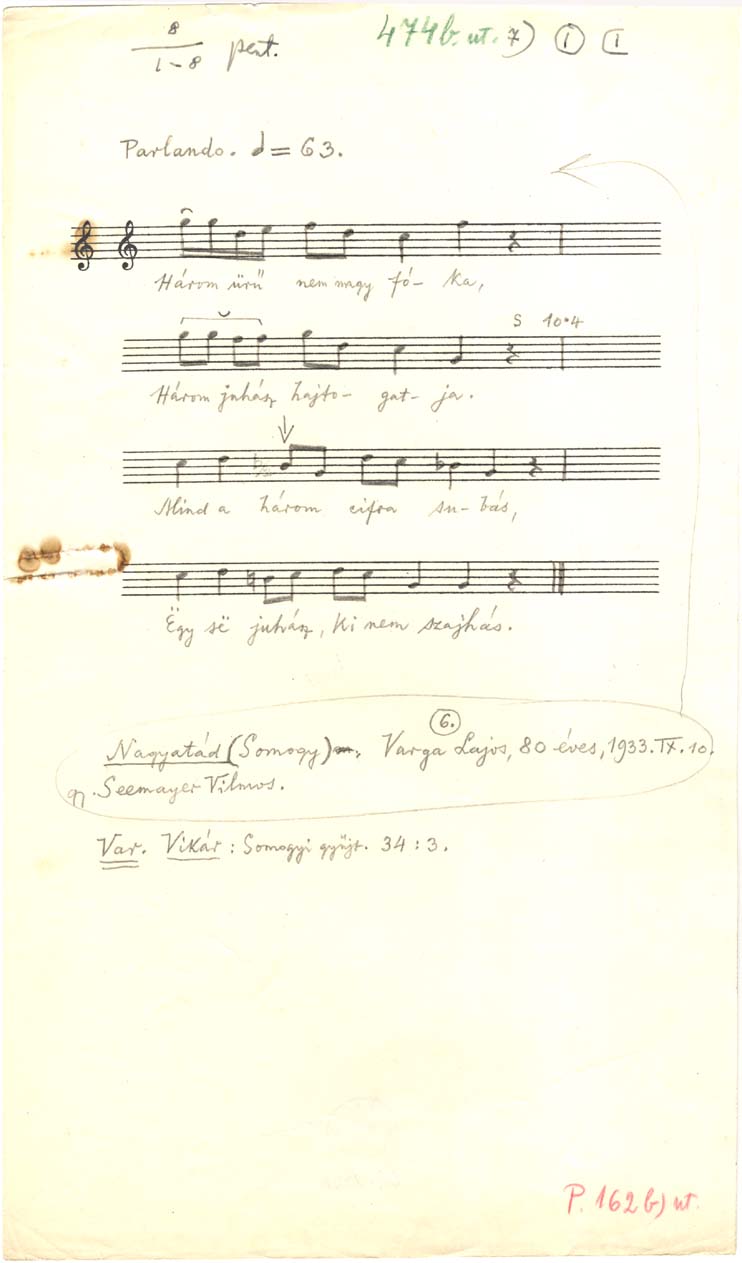 8
1-8 pent.
474b. ut. 7) 1 1
Parlando. = 63.
Három ürü nem nagy fó- ka,
S 10•4
Három juhász hajto- gat- ja.
Mind a három cifra su- bás,
Ëgy së juhász, ki nem szajhás.
6.
Nagyatád (Somogy), Varga Lajos, 80 éves, 1933. IX. 10.
gy. Seemayer Vilmos.
Var. Vikár: Somogyi gyűjt. 34:3.
P. 162 b) ut.